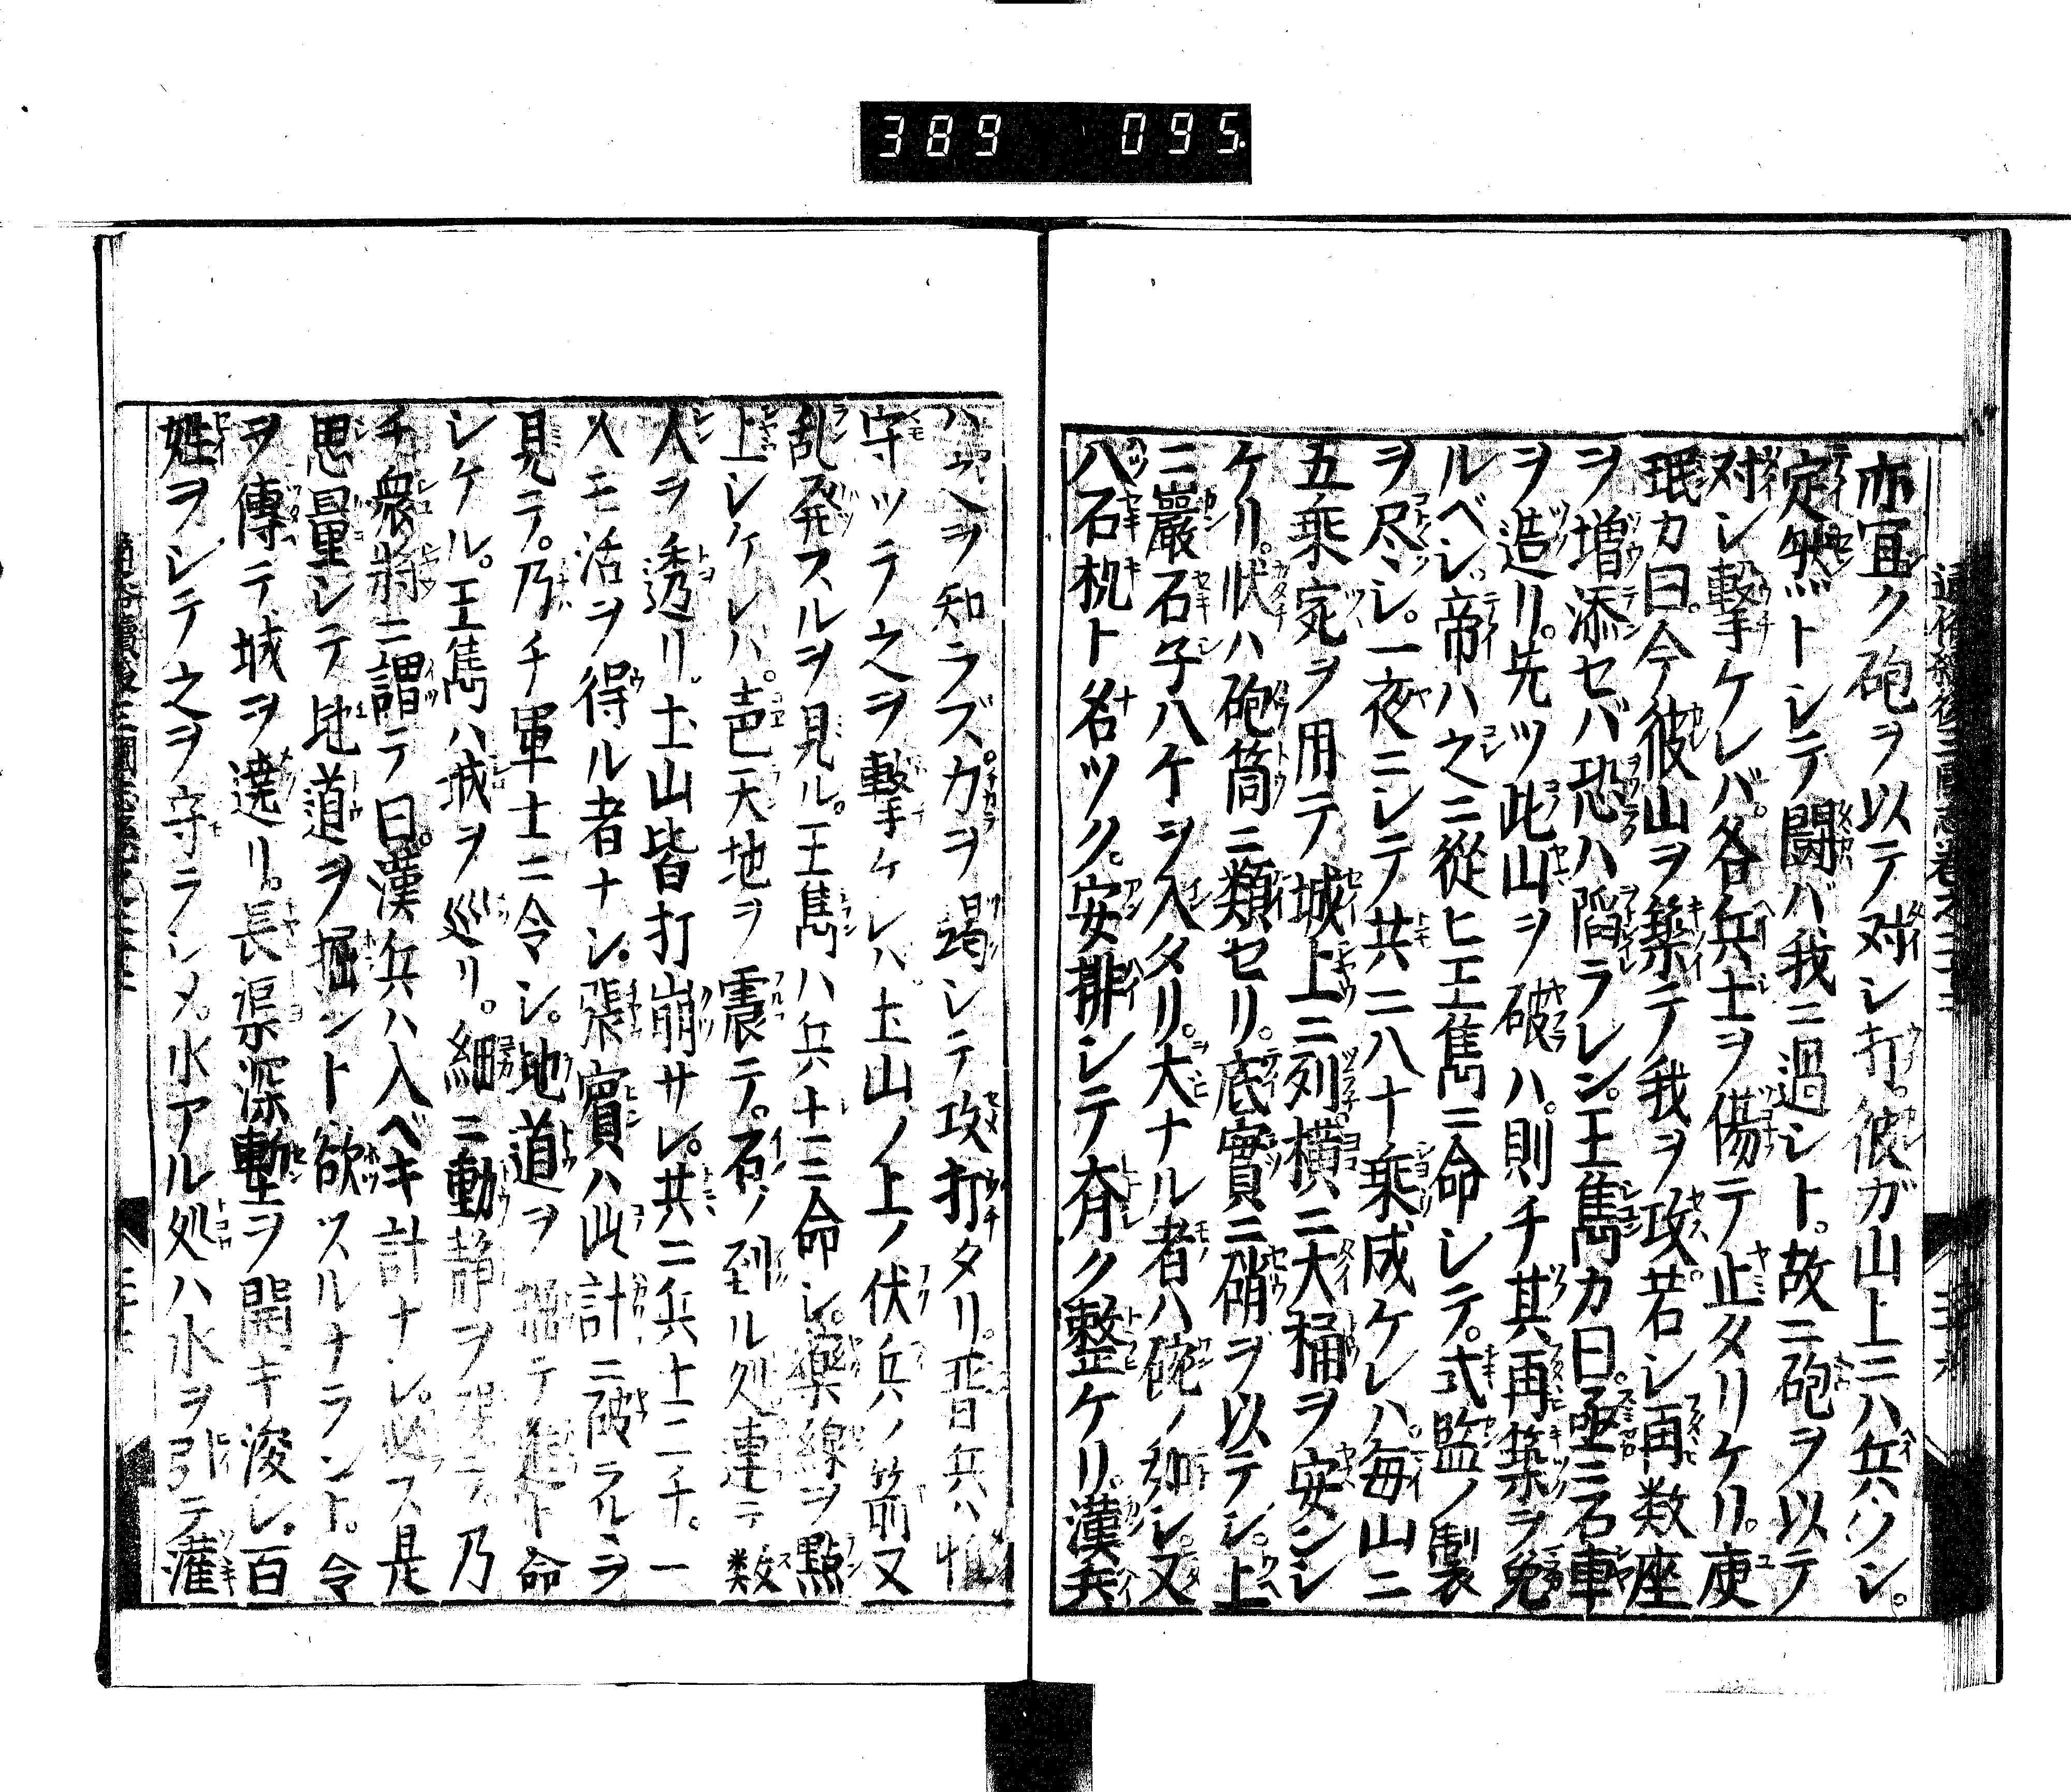 389 095
亦宜ク砲ヲ以テ対シ打。彼ガ山上ニハ兵ソシ。
定然トシテ闘バ我ニ過シト。故ニ砲ヲ以テ
対シ撃ケレバ。各兵士ヲ傷テ止タリケリ。庾
珉カ曰。今彼山ヲ築テ我ヲ攻。若シ再数座
ヲ増添セバ恐ハ陷ラレン。王雋カ曰。亟ニ石車
ヲ造リ。先ツ此山ヲ破ハ。則チ其再築ヲ免
ルベシ。帝ハ之ニ從ヒ王雋ニ命シテ。式監ノ製
ヲ尽シ。一夜ニシテ共ニ八十乗成ケレハ。毎山ニ
五乗宛ヲ用テ城上ニ列。横ニ大桶ヲ安ンシ
ケリ。状ハ砲筒ニ類セリ。底實ニ硝ヲ以テシ。上
ニ巖石子八ケヲ入タリ。大ナル者ハ碗ノ如シ。又
八石机ト名ツク。安排シテ斉ク整ケリ。漢兵
ハ之ヲ知ラズ。力ヲ竭シテ攻打タリ。晋兵ハ惟
守ッテ之ヲ撃ケレハ。土山ノ上ノ伏兵ノ箭又
乱発スルヲ見ル。王雋ハ兵士ニ命シ。藥線ヲ點
上シケレハ。声天地ヲ震テ。石ノ到ル処連テ数
人ヲ透リ。土山皆打崩サレ。共ニ兵上ニチ。一
人モ活ヲ得ル者ナシ。張賓ハ此計ニ破ラルヲ
見テ。乃チ軍士ニ令シ。地道ヲ掘テ進ト命
シケル。王雋ハ城ヲ巡リ。細ニ動静ヲ視テ。乃
チ衆将ニ謂テ曰。漢兵ハ入ベキ計ナシ。必ス是
思量シテ地道ヲ掘ント欲スルナラント。令
ヲ傳テ城ヲ遶リ。長渠深塹ヲ開キ浚シ。百
姓ヲシテ之ヲ守ラシメ。水アル処ハ水ヲ引テ灌